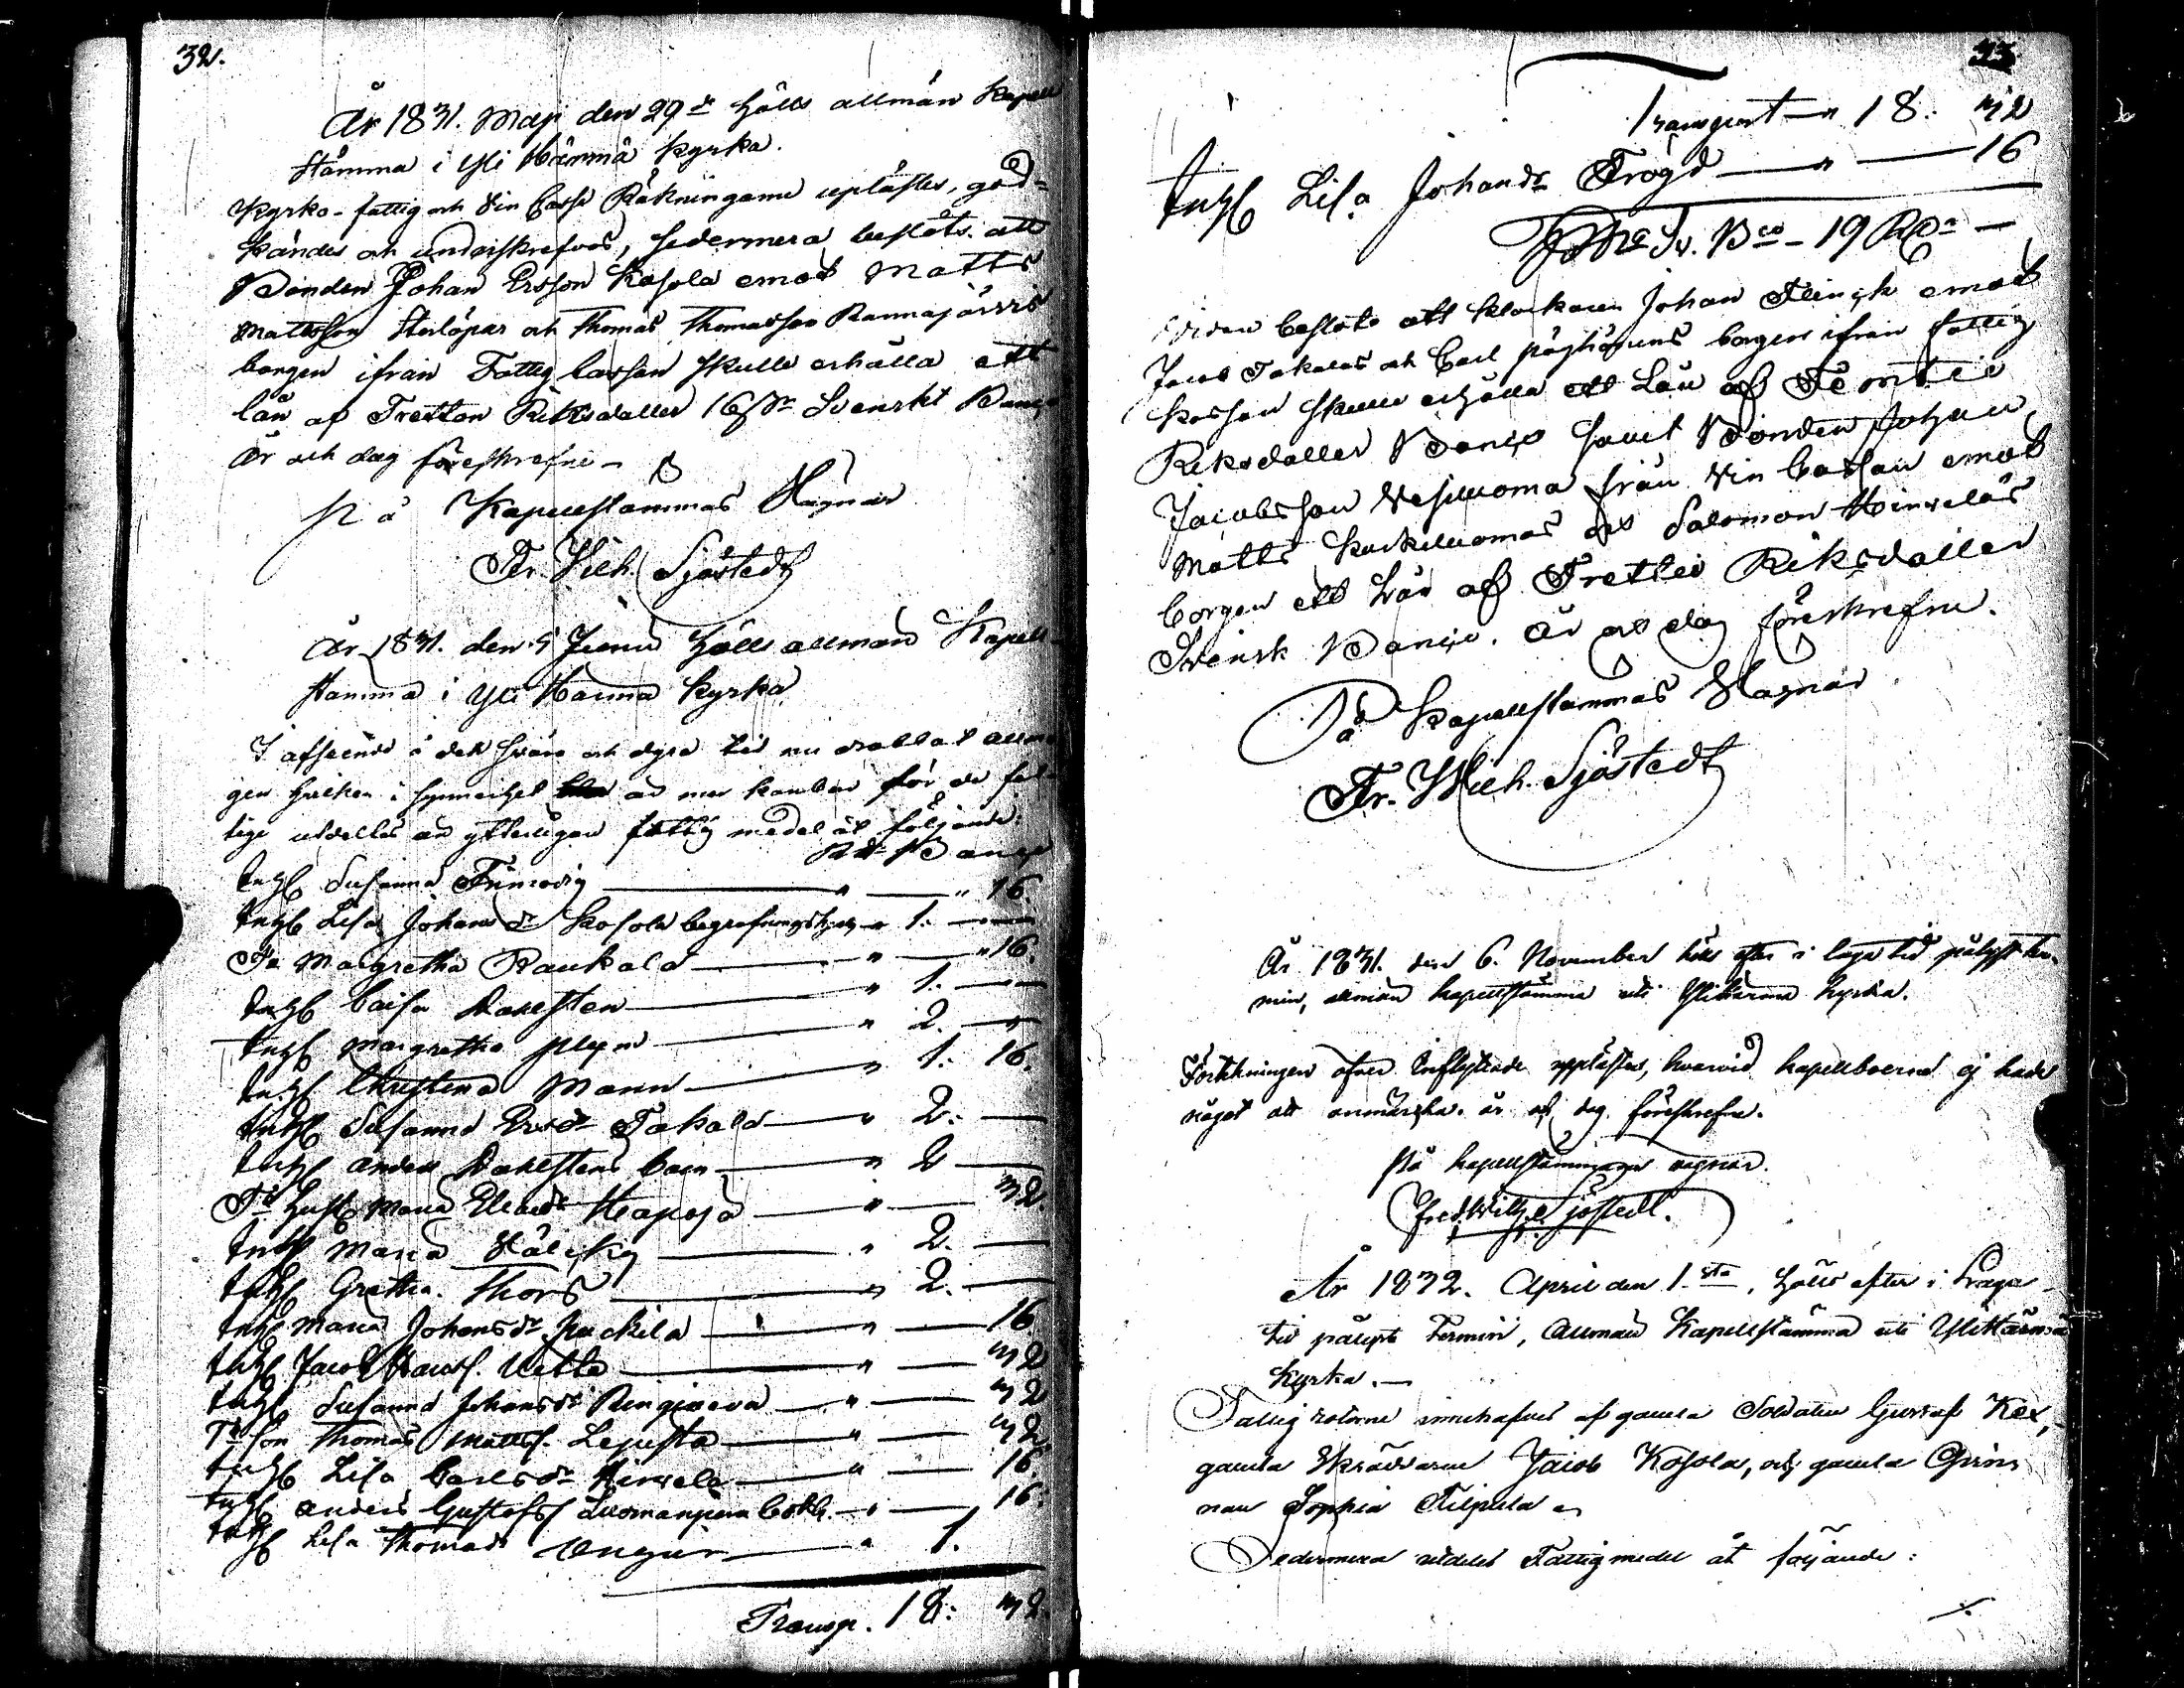 32.
År 1831. Maji den 29de hölls allmän Kapell
stämma i Yli Härmä Kyrka.
Kyrko- fattig och Vin Casse Räkningarne uplästes, god-
kändes och underskrefvos, sedermera beslöts att
Bonden Johan Ersson Kosola emot Matts
Mattsson Herlöpas och Thomas Thomasson Rannajärvis
borgen ifrån Fattig Cassan skulle erhålla ett
lån af Tretton Riksdaler 16 s. Svenskt Banco
År och dag föreskrefne –
På Kapellstämmas Vägnar
Fr. Wilh. Sjöstedt
År 1831. den 5 Junii hölls allmän Kapell-
stämma i Yli Härmä Kyrka
I afseende å den svåra och dyra tid nu drabbat allmo-
gen hvilken i synnerhet är mer kännbar för de fat-
tige utdeltes än ytterligare fattig medel åt följande:
Rd Banco
Inhs Susanna " — " 16.
Inhs Lisa Johansdr Kosola begrafningshjelp " 1. —
Margretha Raukala " — " 16.
Inhs Caisa Dahlsten " 1. —
Inhs Margretha " 2. — "
Inhs Christina Mann " 1. 16.
Inhs Susanna Ersdr Takala " 2. —
Inhs Anders Dahlstens barn " 2 —
Maria Haapoja " — 32.
Inhs Maria " 2. —
Inhs Gretha Thors " 2. —
Inhs Maria Johansdr Puckila " — 16
Inhs Jacob " — 32
Inhs Susanna Johansdr " — 32
son Thomas Matts. " — 32.
Inhs Lisa Carlsdr Hirvelä " — 16.
Inhs Anders Gustafss Luomanperä " — 16.
Inhs Lisa Thomasdr " 1.
Transp. 18: 32.
33
Transport " 18: 32
Inhs Lisa Johansdr Frögd " — 16
Sv. Bco – 19 Rdr –
Vidare beslöts att Klockaren Johan Flinck emot
Jacob Takalas och Carl borgen ifrån fattig
Kassan skulle erhålla ett Lån af Femtio
Riksdaler Banco samt Bonden Johan
Jacobsson från Vin Cassan emot
Matts och Salomon Hirveläs
borgen ett Lån af Trettio Riksdaler
Svensk Banco. År och dag föreskrefne.
På Kapellstämmas Vägnar
Fr. Wilh. Sjöstedt
År 1831. den 6. November hölls efter i laga tid pålyst ter-
min, allmän kapellstämma uti Ylihärmä kyrka.
Förteckningen öfver Inflyttade upplästes, hvarvid kapellboerne ej hade
något att anmärcka. år och dag föreskrefne.
På kapellstämmans vägnar.
Fred. Wilh. Sjöstedt.
År 1832. April den 1sta, hölls efter i Laga
tid pålyst Termin, Allmän Kapellstämma uti Ylihärmä
kyrka. —
Fattig rotorne innehafves af gamla Soldaten Gustaf Kex,
gamla Skräddaren Jacob Kosola, och gamla Qvin-
nan Sophia Filpula
Sedermera utdeltes Fattigmedel åt följande: